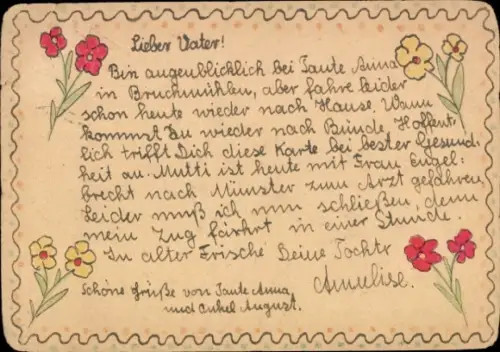 Lieber Vater!
Bin augenblicklich bei Tante Anna
in Bruchmühlen, aber fahre leider
schon heute wieder nach Hause. Wann
kommst Du wieder nach Bünde. Hoffent-
lich trifft Dich diese Karte bei bester Gesund-
heit an. Mutti ist heute mit Frau Engel:
brecht nach Münster zum Arzt gefahren.
Leider muß ich nun schließen, denn
mein Zug fährt in einer Stunde.
In alter Frische Deine Tochter
Annelise.
Schöne Grüße von Tante Anna
und Onkel August.